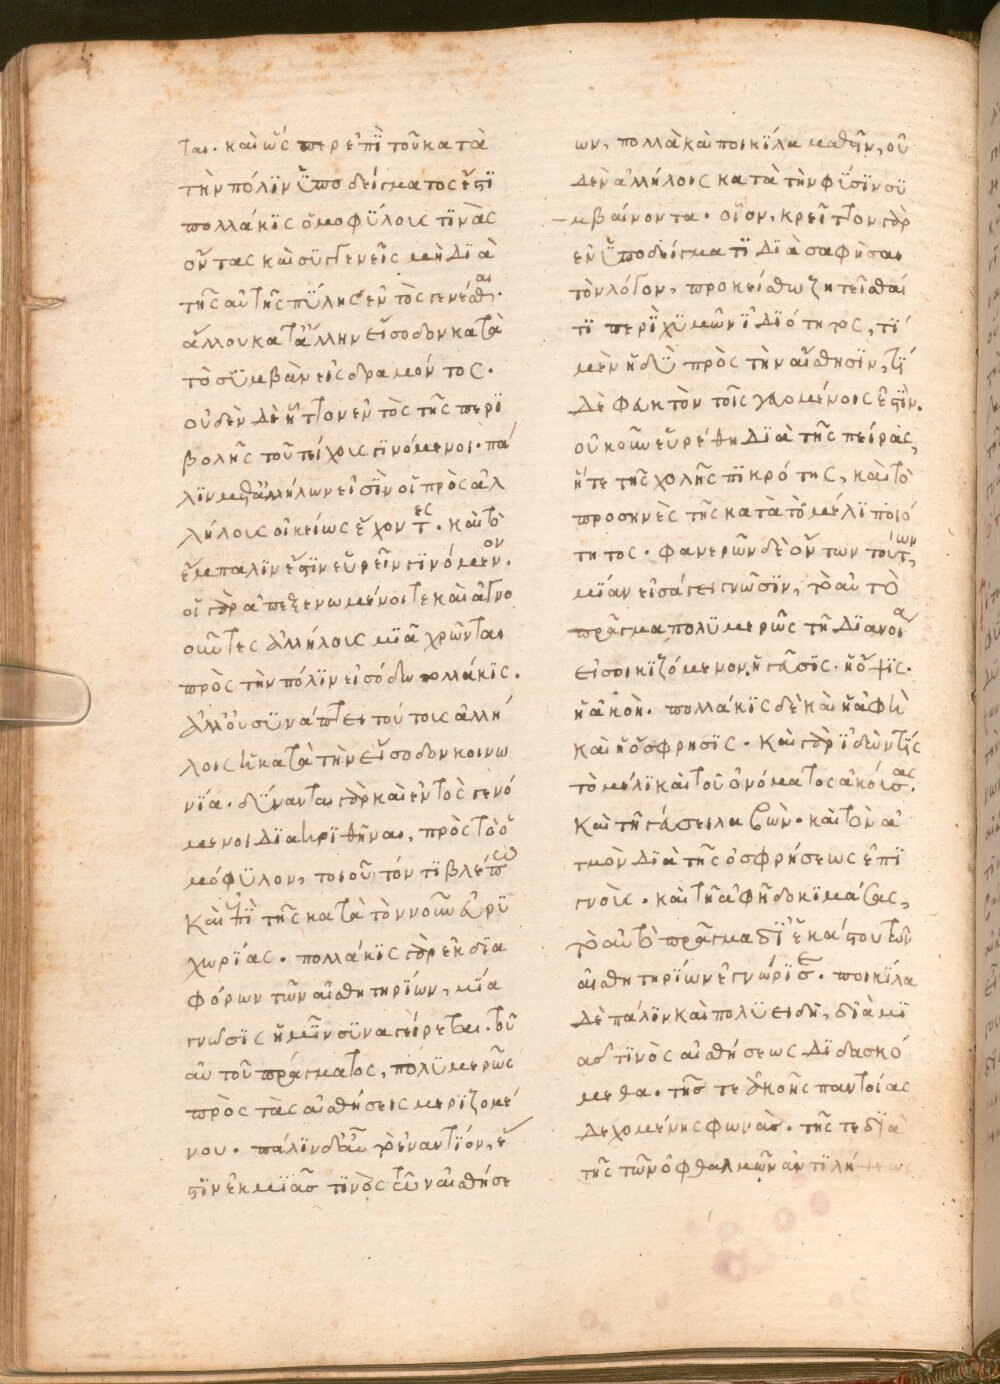 ται. καὶ ὥσπερ ἐπὶ τοῦ κατὰ
τὴν πόλιν ὑποδείγματος ἔστι
πολλάκις ὁμοφύλους τινὰς
ὄντας καὶ συγγενεῖς μὴ διὰ
τῆς αὐτῆς πύλης ἐντὸς γενέσθαι.
ἄλλου κατ' ἄλλην εἴσοδον κατὰ
τὸ συμβὰν εἰσδραμόντος.
οὐδὲν δὲ ἧττον ἐντὸς τῆς περι
βολῆς τοῦ τείχους γινόμενοι. πά
λιν μετ' ἀλλήλων εἰσὶν οἱ πρὸς ἀλ
λήλους οἰκείως ἔχοντες. καὶ τὸ
ἔμπαλιν ἔστιν εὑρεῖν γινόμενον.
οἱ γὰρ ἀπεξενωμένοι τε καὶ ἀγνο
οῦντες ἀλλήλους μιᾶ χρῶνται
πρὸς τὴν πόλιν εἰσόδω πολλάκις.
ἀλλ' οὐ συνάπτει τούτοις ἀλλή
λοις ἡ κατὰ τὴν εἴσοδον κοινω
νία. δύνανται γὰρ καὶ ἐντὸς γενό
μενοι διακριθῆναι, πρὸς τὸ ὁ
μόφυλον, τοιοῦτόν τι βλέπω
καὶ ἐπὶ τῆς κατὰ τὸν νοῦν εὐρυ
χωρίας. πολλάκις γὰρ ἐκ δια
φόρων τῶν αἰσθητηρίων, μία
γνῶσις ἡμῖν συναγείρεται. τοῦ
αὐτοῦ πράγματος, πολυμερῶς
πρὸς τὰς αἰσθήσεις μεριζομέ
νου. πάλιν δ' αὖ τὸ ἐναντίον, ἔ
στιν ἐκ μιᾶς τινὸς τῶν αἰσθήσε
ων, πολλὰ καὶ ποικίλα μαθεῖν, οὐ
δὲν ἀλλήλοις κατὰ τὴν φύσιν συ
μβαίνοντα. οἷον, κρεῖττον γὰρ
ἐν ὑποδείγματι διασαφῆσαι
τὸν λόγον, προκείσθω ζητεῖσθαί
τι περὶ χυμῶν ἰδιότητος, τί
μὲν ἡδὺ πρὸς τὴν αἴσθησιν, τί
δὲ φευκτὸν τοῖς γευομένοις ἐστίν.
οὐκοῦν εὑρέθη διὰ τῆς πείρας,
ἥτε τῆς χολῆς πικρότης, καὶ τὸ
προσηνὲς τῆς κατὰ τὸ μέλι ποιό
τητος. φανερῶν δὲ ὄντων τούτων,
μίαν εἰσάγει γνῶσιν, τὸ αὐτὸ
πρᾶγμα πολυμερῶς τῆ διανοία
εἰσοικιζόμενον, ἡ γεῦσις. ἡ ὄψις.
ἡ ἀκοή. πολλάκις δὲ καὶ ἡ ἀφὴ
καὶ ἡ ὄσφρησις. καὶ γὰρ ἰδών τις
τὸ μέλι καὶ τοῦ ὀνόματος ἀκούσας.
καὶ τῆ γεύσει λαβών. καὶ τὸν ἀ
τμὸν διὰ τῆς ὀσφρήσεως ἐπι
γνούς. καὶ τῆ ἀφῆ δοκιμάσας,
τὸ αὐτὸ πρᾶγμα δι' ἑκάστου τῶν
αἰσθητηρίων ἐγνώρισε. ποικίλα
δὲ πάλιν καὶ πολυειδῆ, διὰ μι
ᾶς τινὸς αἰσθήσεως διδασκό
μεθα. τῆς τε ἀκοῆς παντοίας
δεχομένης φωνάς. τῆς τε διὰ
τῆς τῶν ὀφθαλμῶν ἀντιλήψεως